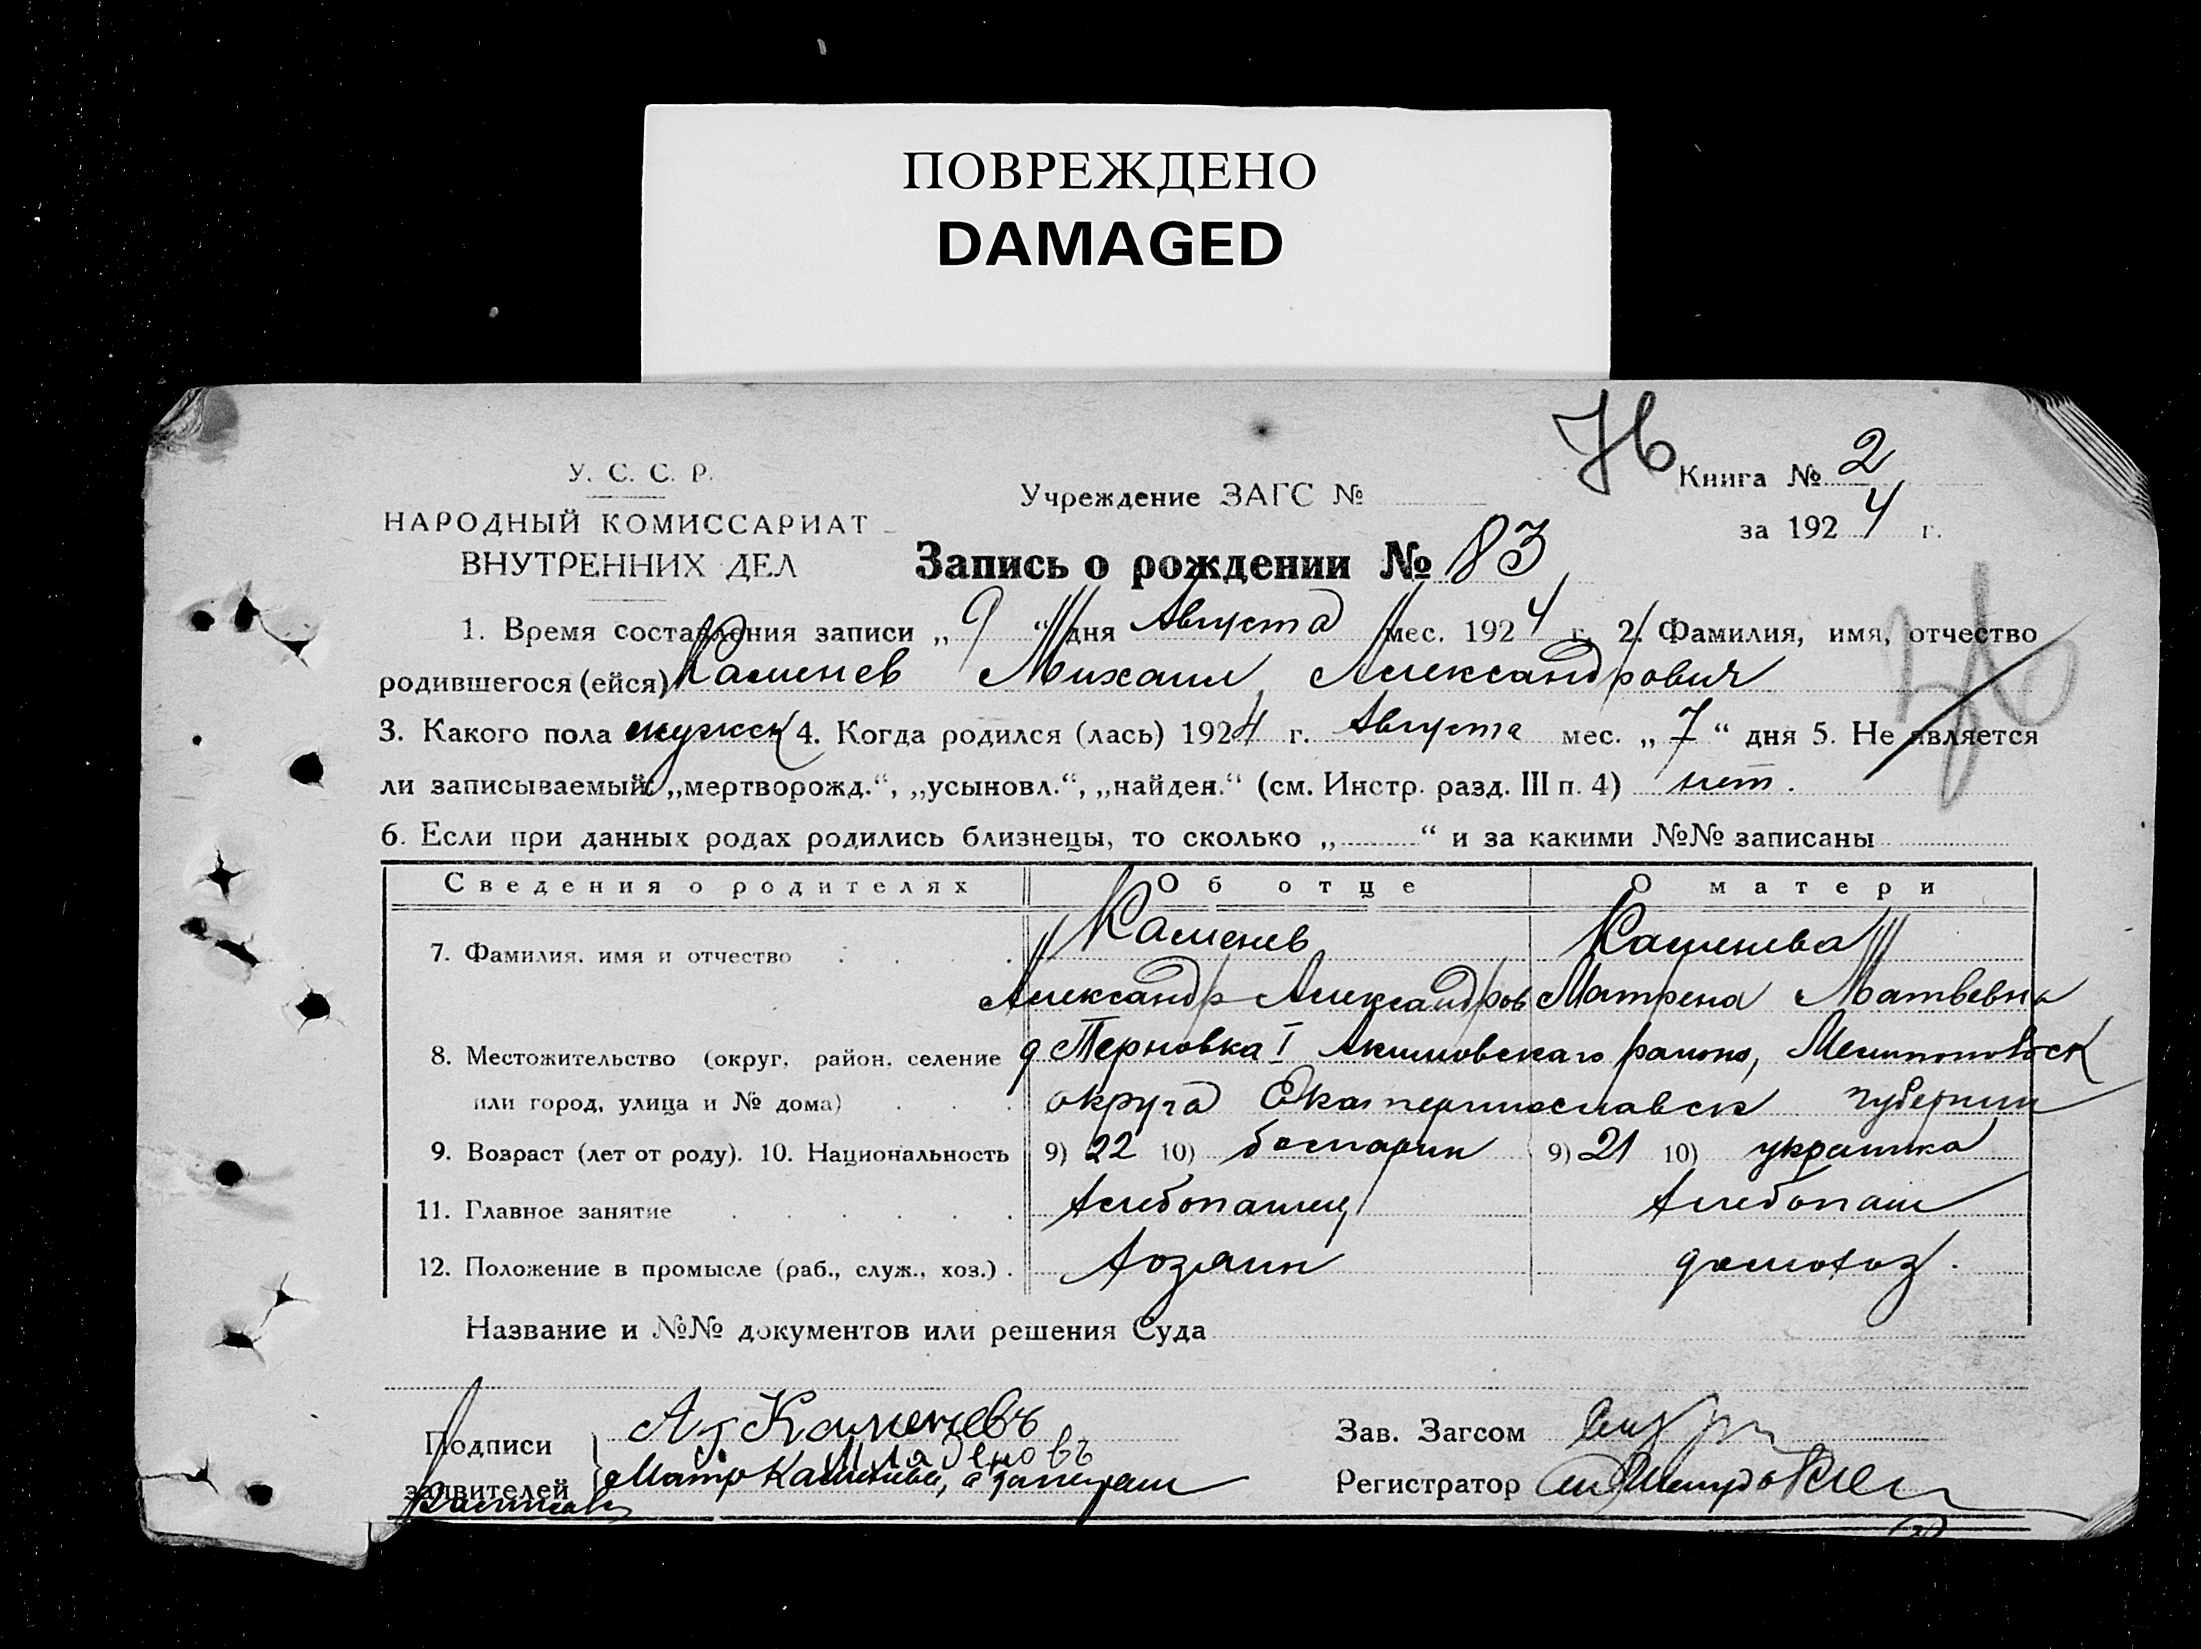 ПОВРЕЖДЕНО
DAMAGED
У. С. С. Р.
НАРОДНЫЙ КОМИССАРИАТ
ВНУТРЕННИХ ДЕЛ
Учреждение ЗАГС №
Книга № 2
за 1924 г.
Запись о рождении № 83
1. Время составления записи „9“ дня Августа мес. 1924 г. 2. Фамилия, имя, отчество
родившегося (ейся) Каменев Михаил Александрович
3. Какого пола мужск 4. Когда родился (лась) 1924 г. Августа мес. „7“ дня 5. Не является
ли записываемый: „мертворожд.“, „усыновл.“, „найден.“ (см. Инстр. разд. III п. 4) нет.
6. Если при данных родах родились близнецы, то сколько „ “ и за какими №№ записаны
Сведения о родителях Об отце О матери
7. Фамилия, имя и отчество Каменев Каменева
Александр Александров Матрена Матвевна
8. Местожительство (округ, район, селение д Терновка I Акимовскаго района, Мелитопольск
или город, улица и № дома) округа Екатеринославск губернии
9. Возраст (лет от роду). 10. Национальность 9) 22 10) болгарин 9) 21 10) украинка
11. Главное занятие Хлебопашец Хлебопаш
12. Положение в промысле (раб., служ., хоз.) Хозяин домохоз.
Название и №№ документов или решения Суда
Подписи заявителей
Ал Каменевъ
Младеновъ
Матр Каменева,
Зав. Загсом
Регистратор